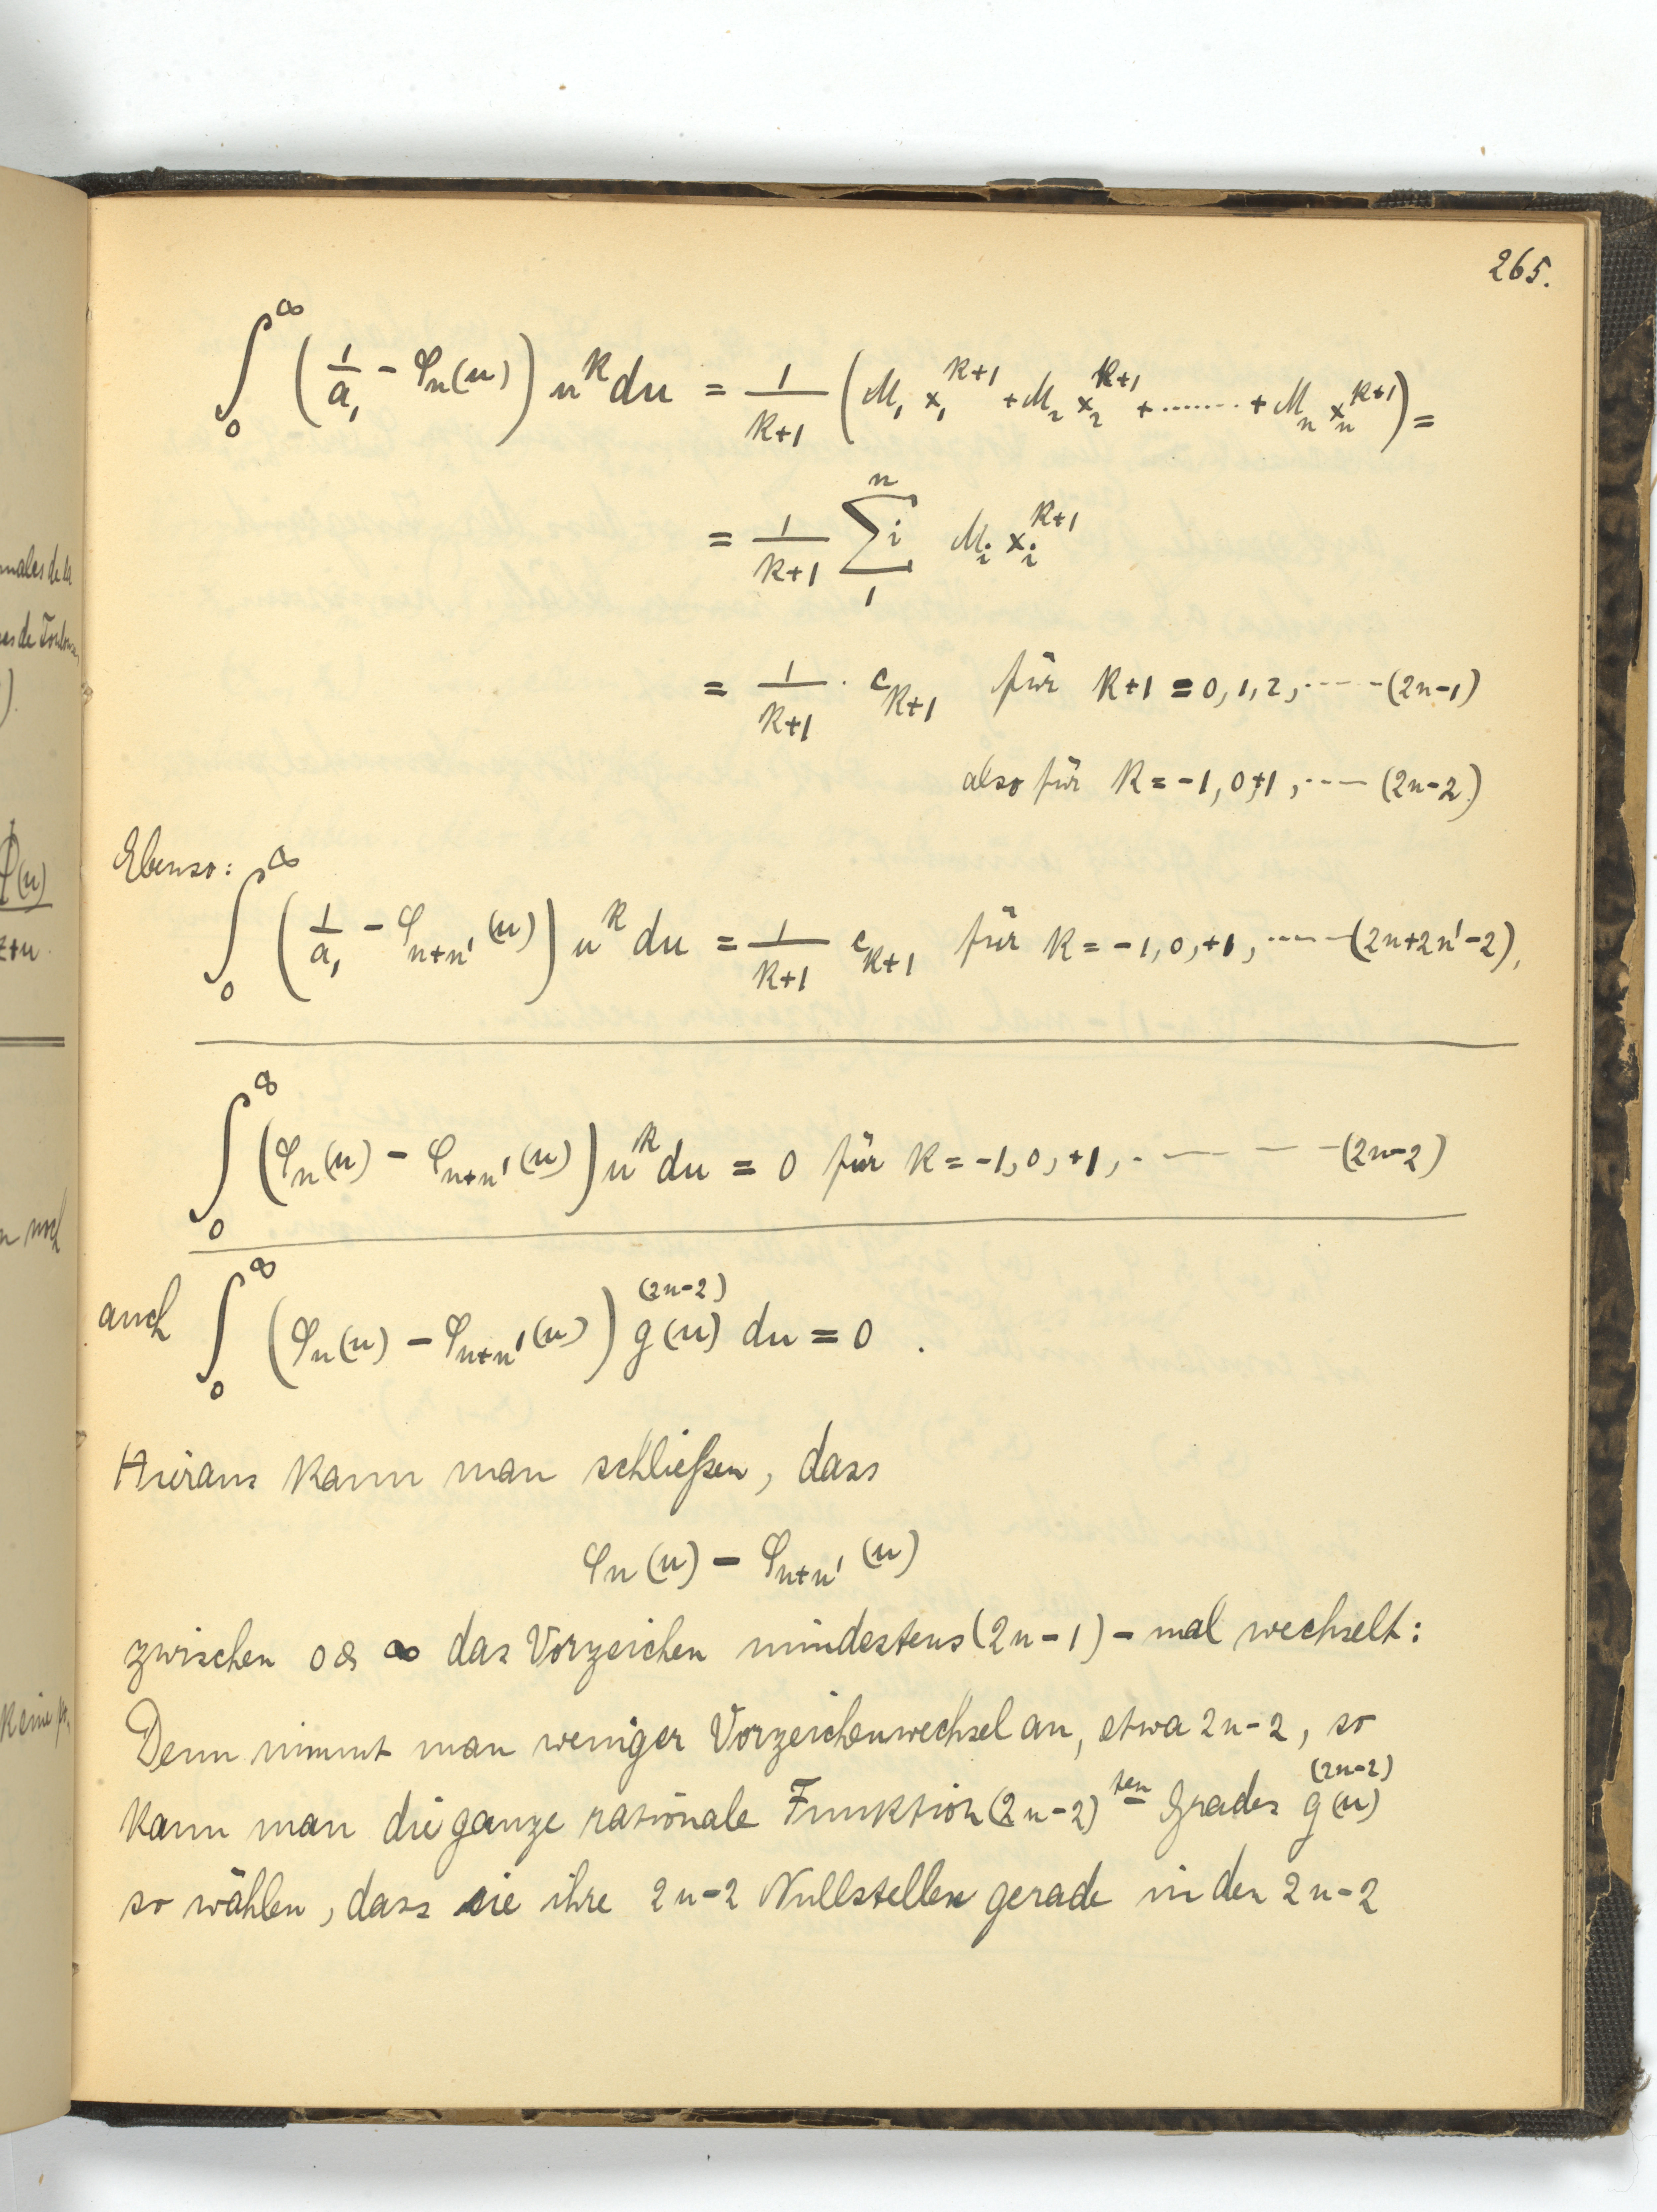 265.
∫₀^∞ (1/a₁ - φₙ(u)) u^k du = 1/(k+1) (M₁ x₁^(k+1) + M₂ x₂^(k+1) + ....... + Mₙ xₙ^(k+1)) =
= 1/(k+1) Σᵢ₁ⁿ Mᵢ xᵢ^(k+1)
= 1/(k+1) · c_(k+1) für k+1 = 0, 1, 2, ---- (2n-1)
also für k = -1, 0, +1, ---- (2n-2)
Ebenso:
∫₀^∞ (1/a₁ - φ_(n+n')(u)) u^k du = 1/(k+1) c_(k+1) für k = -1, 0, +1, ---- (2n+2n'-2),
∫₀^∞ (φₙ(u) - φ_(n+n')(u)) u^k du = 0 für k = -1, 0, +1, - — — — (2n-2)
auch ∫₀^∞ (φₙ(u) - φ_(n+n')(u)) g^(2n-2)(u) du = 0 .
Hieraus kann man schließen, dass
φₙ(u) - φ_(n+n')(u)
zwischen 0 & ∞ das Vorzeichen mindestens (2n-1)-mal wechselt:
Denn nimmt man weniger Vorzeichenwechsel an, etwa 2n-2, so
kann man die ganze rationale Funktion (2n-2)ten Grades g^(2n-2)(u)
so wählen, dass sie ihre 2n-2 Nullstellen gerade in den 2n-2